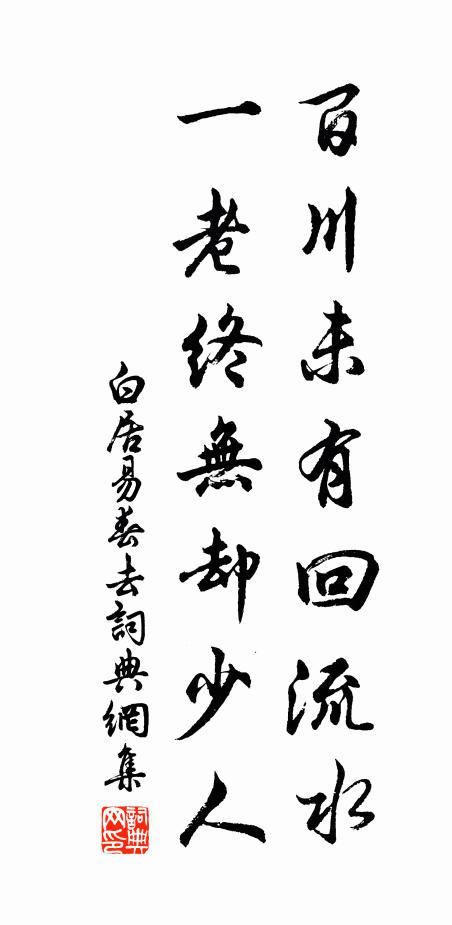 百川未有回流水
一老終無却少人
白居易春去詞典網集
詞典網印